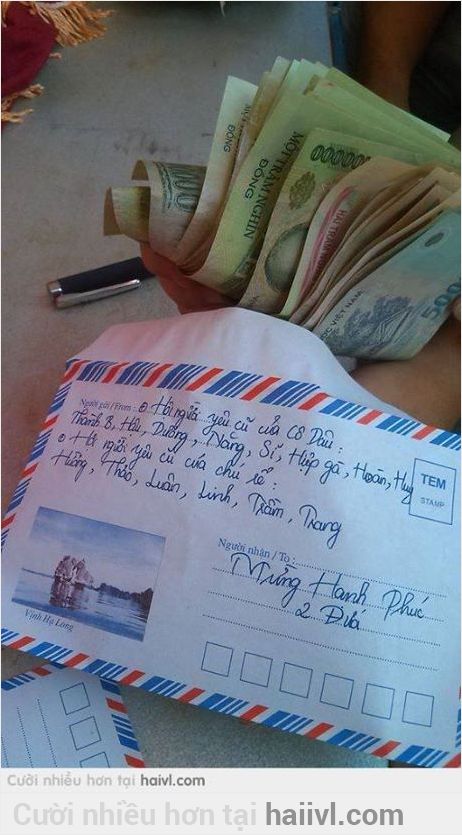 ĐỒNG
MỘT TRĂM NGHÌN
ĐỒNG
000000
VIỆT NAM
Người gửi / From : Hội người yêu cũ của Cô Dâu :
Thành B, Hải, Dưỡng, Năng, Sĩ, Hiệp gà, Hoàn, Huy
Hội người yêu cũ của chú rể :
Hiềng, Thảo, Luân, Linh, Trầm, Trang
TEM
STAMP
Người nhận / To :
Mừng Hạnh Phúc
2 Đứa
Vịnh Hạ Long
Cười nhiều hơn tại haivl.com
Cười nhiều hơn tại haiivl.com